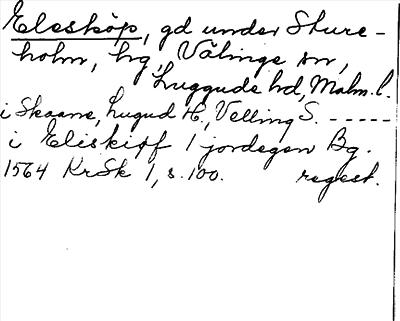 Eleshöp, gd under Sture-
holm, hg, Välinge sn,
Luggude hd, Malm. l.
i Skaane, Lugud H., Velling S. -----
i Eliskiøf 1 jordegen Bg.
1564 KrSk 1, s. 100. regest.